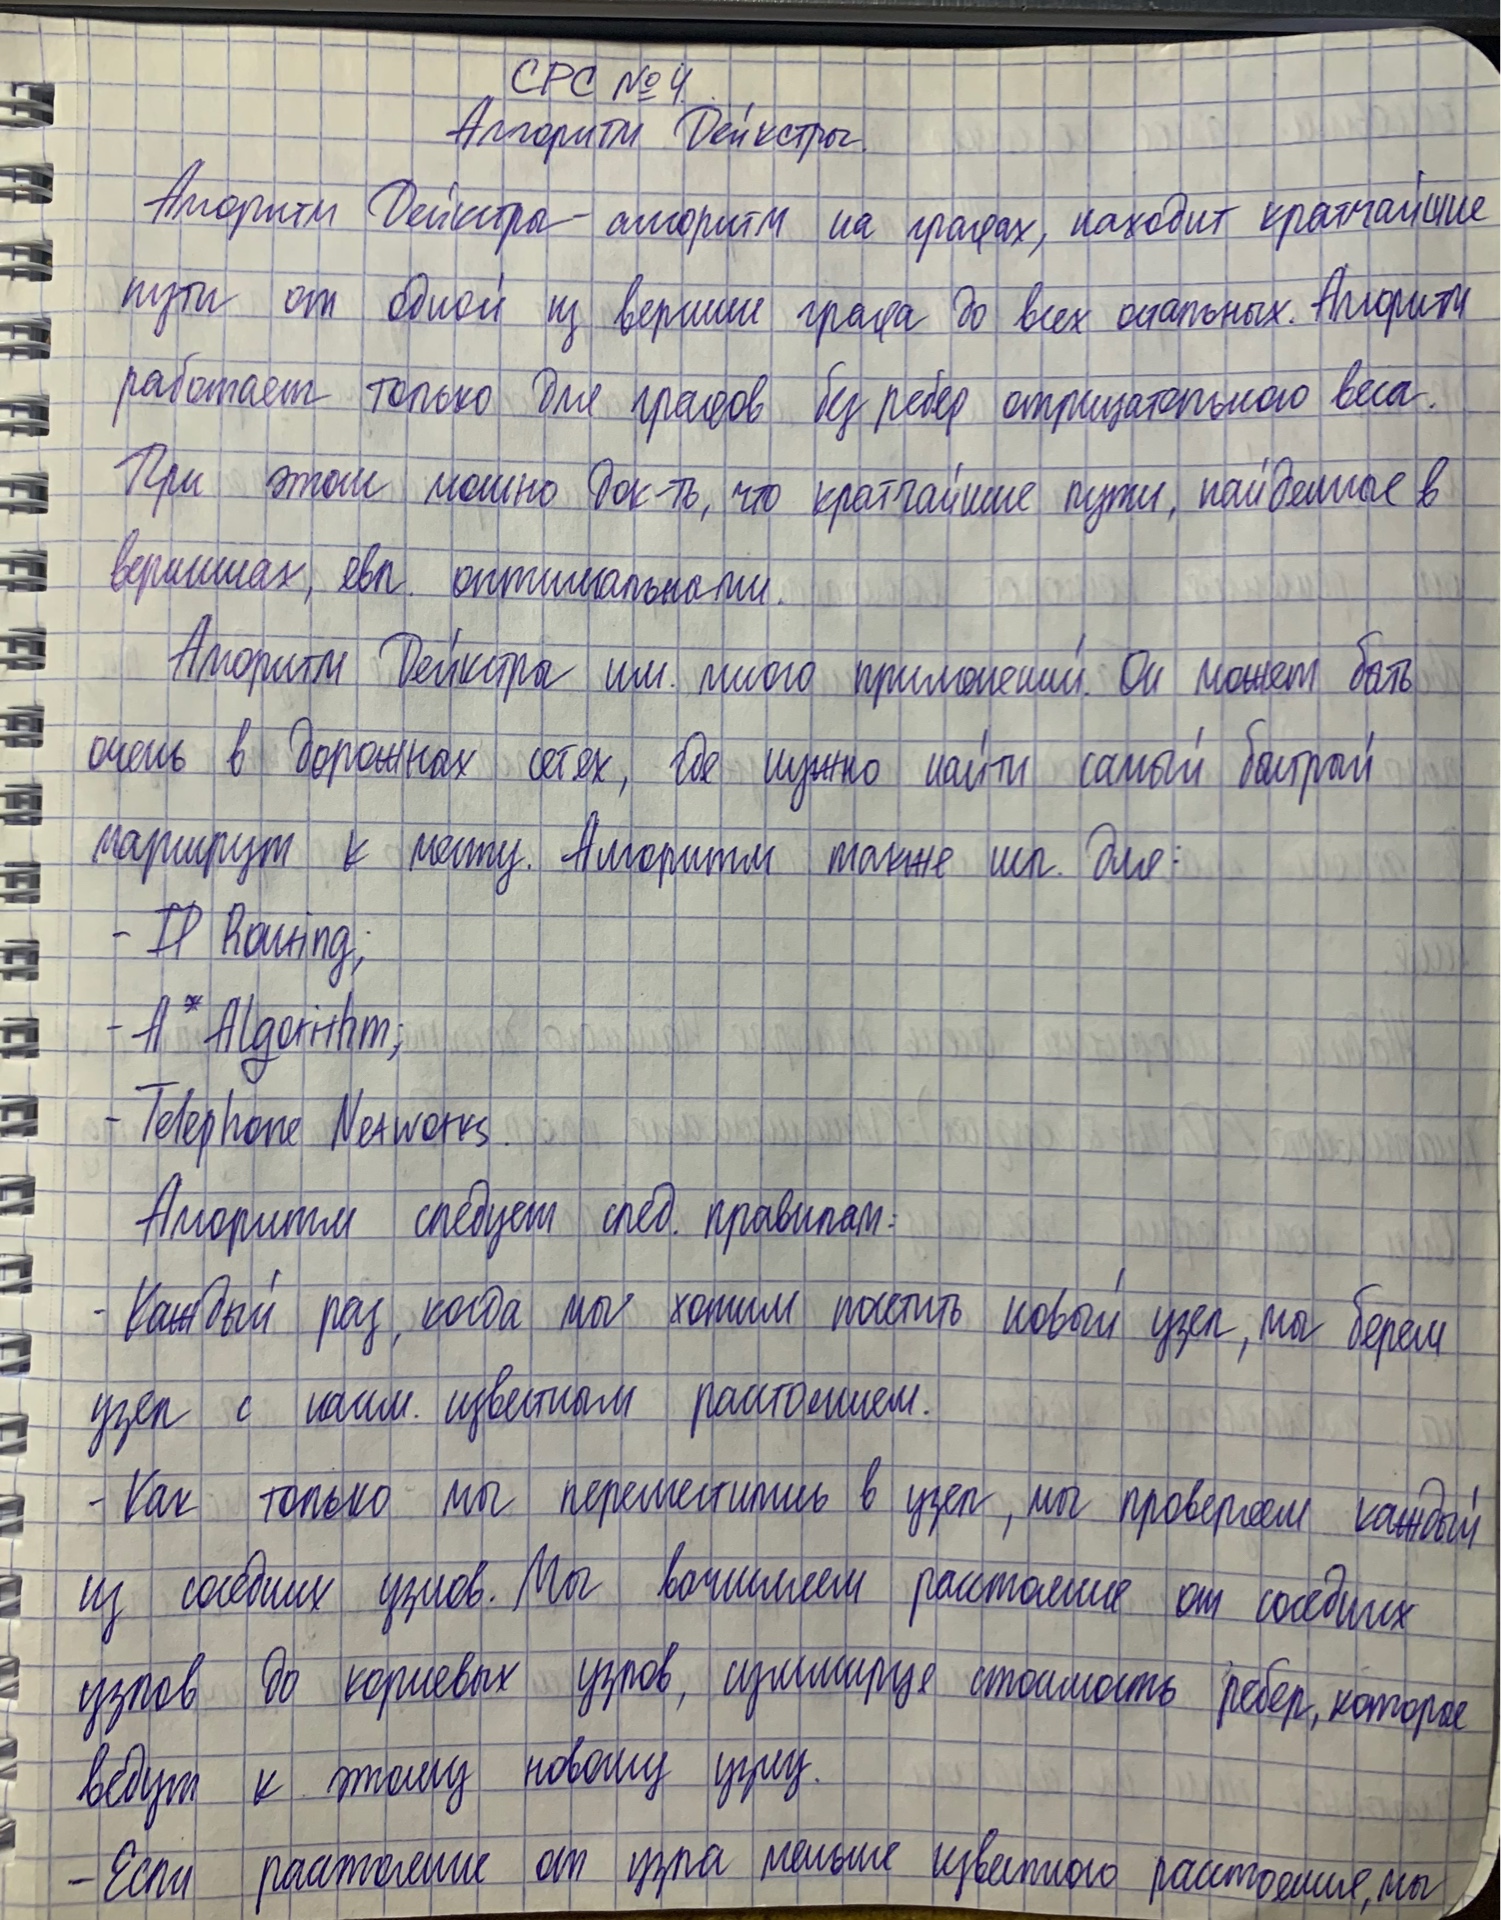 СРС №4.
Алгоритм Дейкстры.
Алгоритм Дейкстры - алгоритм на графах, находит кратчайшие
пути от одной из вершин графа до всех остальных. Алгоритм
работает только для графов без рёбер отрицательного веса.
При этом можно док-ть, что кратчайшие пути, найденные в
вершинах, явл. оптимальными.
Алгоритм Дейкстры им. много применений. Он может быть
очень в дорожных сетях, где нужно найти самый быстрый
маршрут к месту. Алгоритм также исп. для:
- IP Routing;
- A* Algorithm;
- Telephone Networks.
Алгоритм следует след. правилам:
- Каждый раз, когда мы хотим посетить новый узел, мы берем
узел с наим. известным расстоянием.
- Как только мы переместились в узел, мы проверяем каждый
из соседних узлов. Мы вычисляем расстояние от соседних
узлов до корневых узлов, суммируя стоимость рёбер, которые
ведут к этому новому узлу.
- Если расстояние от узла меньше известного расстояния, мы